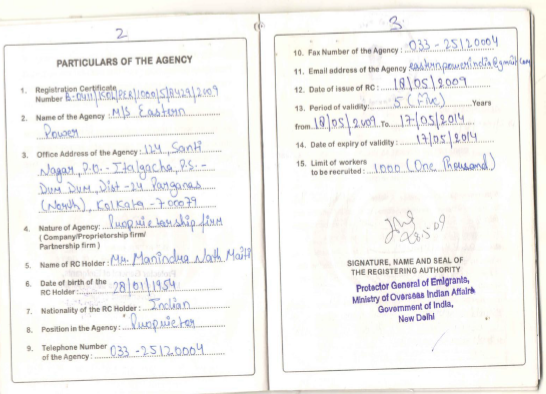 2
PARTICULARS OF THE AGENCY
1. Registration Certificate
Number B-0411/KOL/PER/1000/5/8429/2009
2. Name of the Agency : M/S Eastern
Power
3. Office Address of the Agency : 124, Santi
Nagar, P.O. - Italgacha, P.S. -
Dum Dum, Dist - 24 Parganas
(North), Kolkata - 700079
4. Nature of Agency: Proprietorship firm
( Company/Proprietorship firm/
Partnership firm )
5. Name of RC Holder : Mr. Manindra Nath Maiti
6. Date of birth of the
RC Holder : 28/01/1954
7. Nationality of the RC Holder : Indian
8. Position in the Agency : Proprietor
9. Telephone Number
of the Agency : 033 - 25120004
3
10. Fax Number of the Agency : 033 - 25120004
11. Email address of the Agency easternpowerindia@gmail.com
12. Date of issue of RC : 18/05/2009
13. Period of validity : 5 (Five) Years
from 18/05/2009 To 17/05/2014
14. Date of expiry of validity : 17/05/2014
15. Limit of workers
to be recruited : 1000 (One Thousand)
SIGNATURE, NAME AND SEAL OF
THE REGISTERING AUTHORITY
Protector General of Emigrants,
Ministry of Overseas Indian Affairs
Government of India,
New Delhi